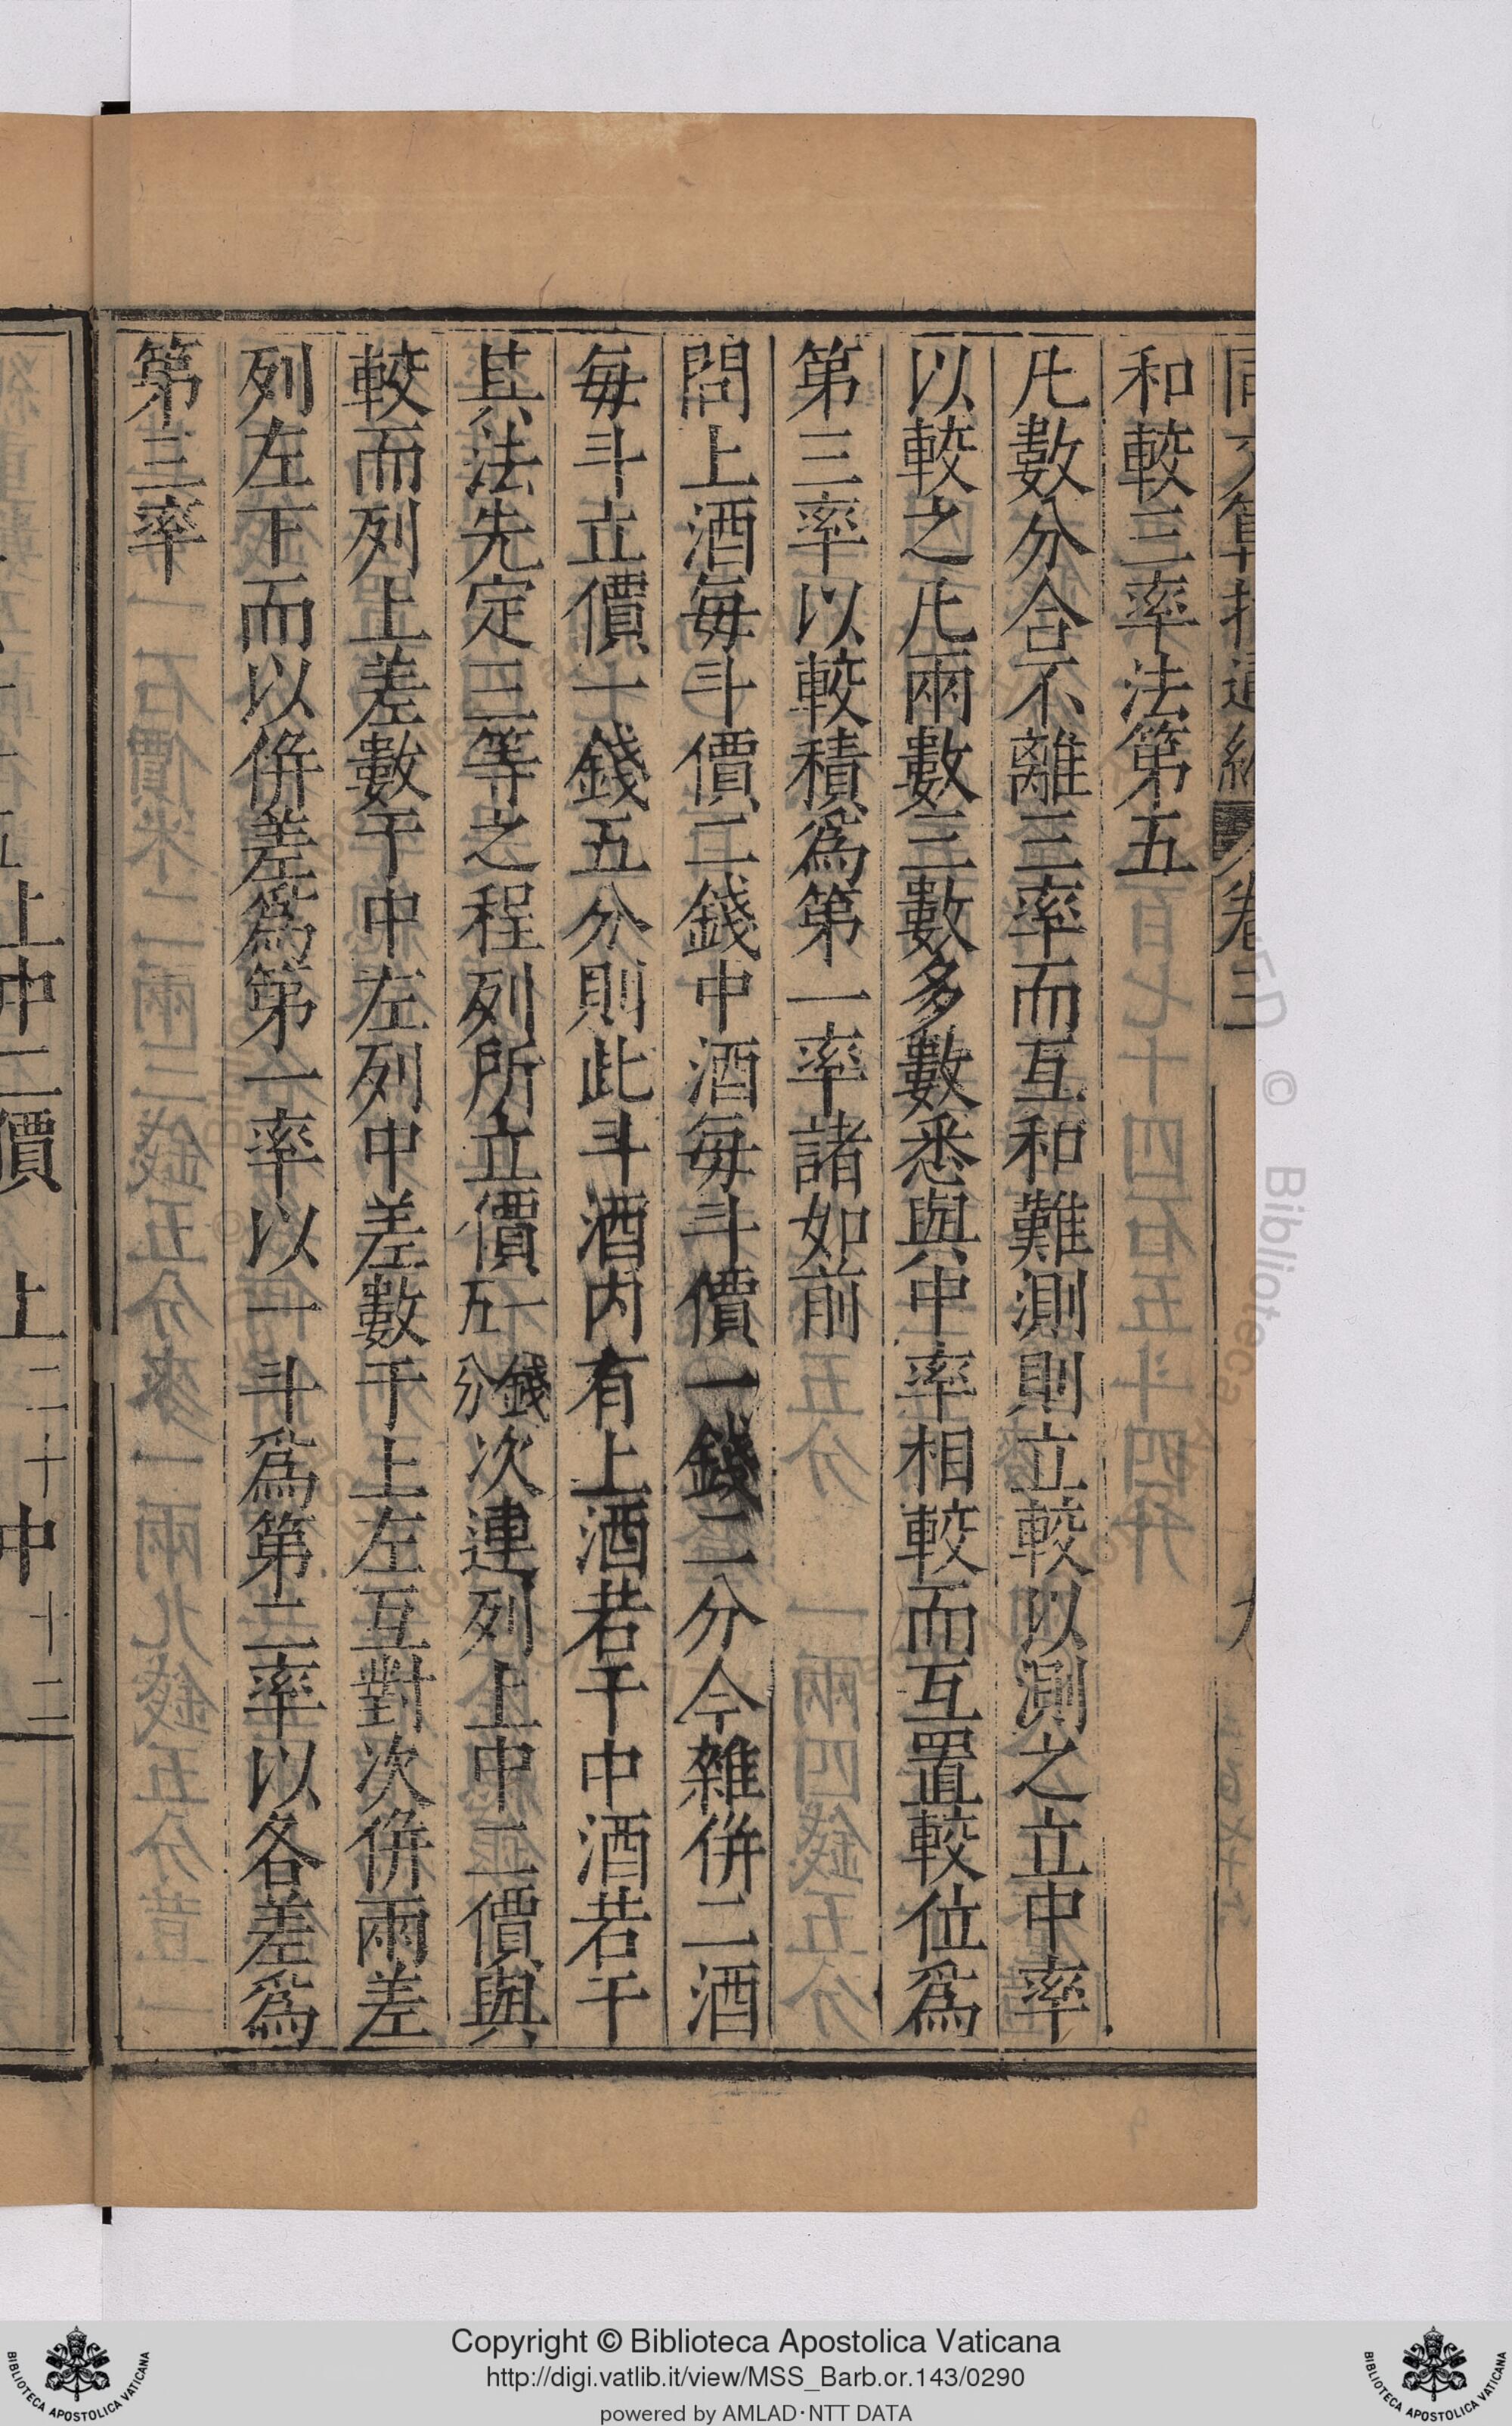 和較三率法第五
凡數分合不離三率而互和難測則立較以測之立中率
以較之凡兩數三數多數悉與中率相較而互置較位爲
第三率以較積爲第一率諸如前
問上酒每斗價二錢中酒每斗價一錢二分今雜併二酒
每斗立價一錢五分則此斗酒内有上酒若干中酒若干
其法先定三等之程列所立價一錢五分次連列上中二價與
較而列上差數于中左列中差數于上左互對次併兩差
列左下而以併差爲第一率以一斗爲第二率以各差爲
第三率
上中二價 上二十中十二
Copyright © Biblioteca Apostolica Vaticana
http://digi.vatlib.it/view/MSS_Barb.or.143/0290
powered by AMLAD·NTT DATA
BIBLIOTECA APOSTOLICA VATICANA
BIBLIOTECA APOSTOLICA VATICANA